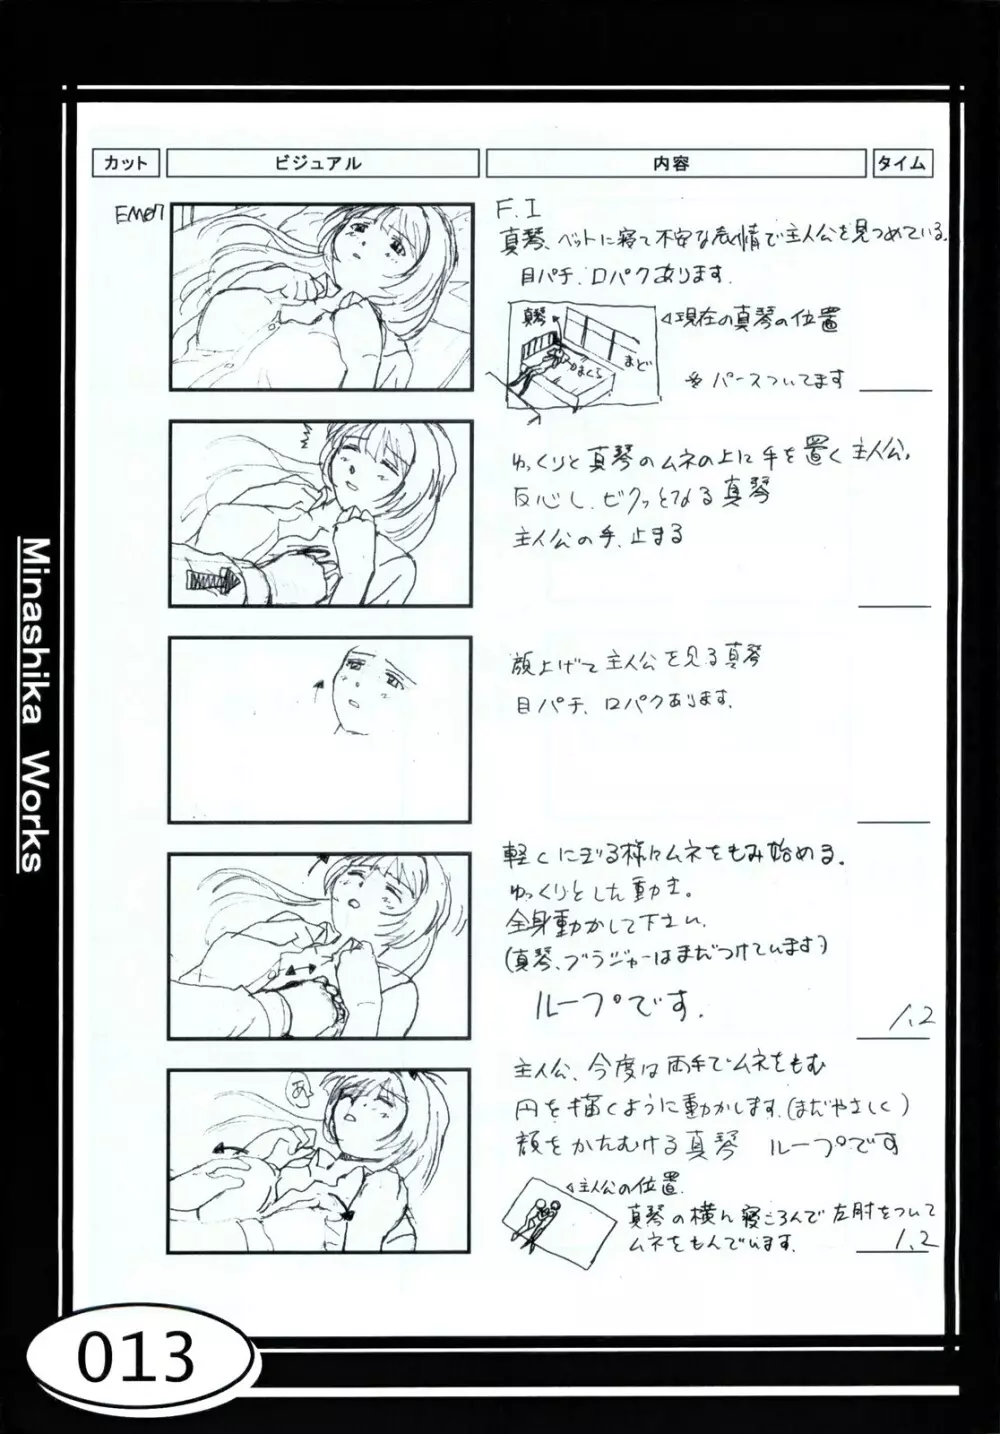 カット ビジュアル 内容 タイム
EM07
F.I
真琴、ベットに寝て不安な表情で主人公を見つめている。
目パチ、口パクあります。
真琴
まくら
まど
◁現在の真琴の位置
※パースついてます
ゆっくりと真琴のムネの上に手を置く主人公。
反応し、ビクッとなる真琴
主人公の手、止まる
顔上げて主人公を見る真琴
目パチ、口パクあります。
軽くにぎる様にムネをもみ始める。
ゆっくりとした動き。
全身動かして下さい。
(真琴、ブラジャーはまだつけています)
ループです。
1.2
あっ
主人公、今度は両手でムネをもむ
円を描くように動かします。(まだやさしく)
顔をかたむける真琴 ループです
◁主人公の位置。
真琴の横に寝ころんで左肘をついて
ムネをもんでいます。
1.2
Minashika Works
013